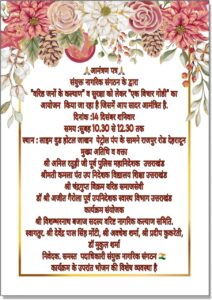 🙏आमंत्रण पत्र🙏
संयुक्त नागरिक संगठन के द्वारा
"वरिष्ठ जनों के कल्याण" व सुरक्षा को लेकर "एक विचार गोष्ठी" का
आयोजन किया जा रहा है जिसमें आप सादर आमंत्रित है.
दिनांक :14 दिसंबर शनिवार
समय :सुबह 10.30 से 12.30 तक
स्थान : लाइम वुड होटल जाखन पेट्रोल पंप के सामने राजपुर रोड देहरादून
मुख्य अतिथि व वक्ता
श्री अनिल रतूड़ी जी पूर्व पुलिस महानिदेशक उत्तराखंड
श्रीमती कमला पंत उप निदेशक विद्यालय शिक्षा उत्तराखंड
श्री चंद्रगुप्त विक्रम वरिष्ठ समाजसेवी
डॉ श्री अजीत गैरोला पूर्व उपनिदेशक स्वास्थ्य विभाग उत्तराखंड
कार्यक्रम संयोजक
श्री विशम्भरनाथ बजाज सदस्य वरिष्ट नागरिक कल्याण समिति.
स्वागतूर. श्री देवेंद्र पाल सिंह मोंटी, श्री अवधेश शर्मा, श्री प्रदीप कुकरेती,
डॉ मुकुल शर्मा
निवेदक. समस्त पदाधिकारी संयुक्त नागरिक संगठन 🇮🇳
कार्यक्रम के उपरांत भोजन की विशेष व्यवस्था है